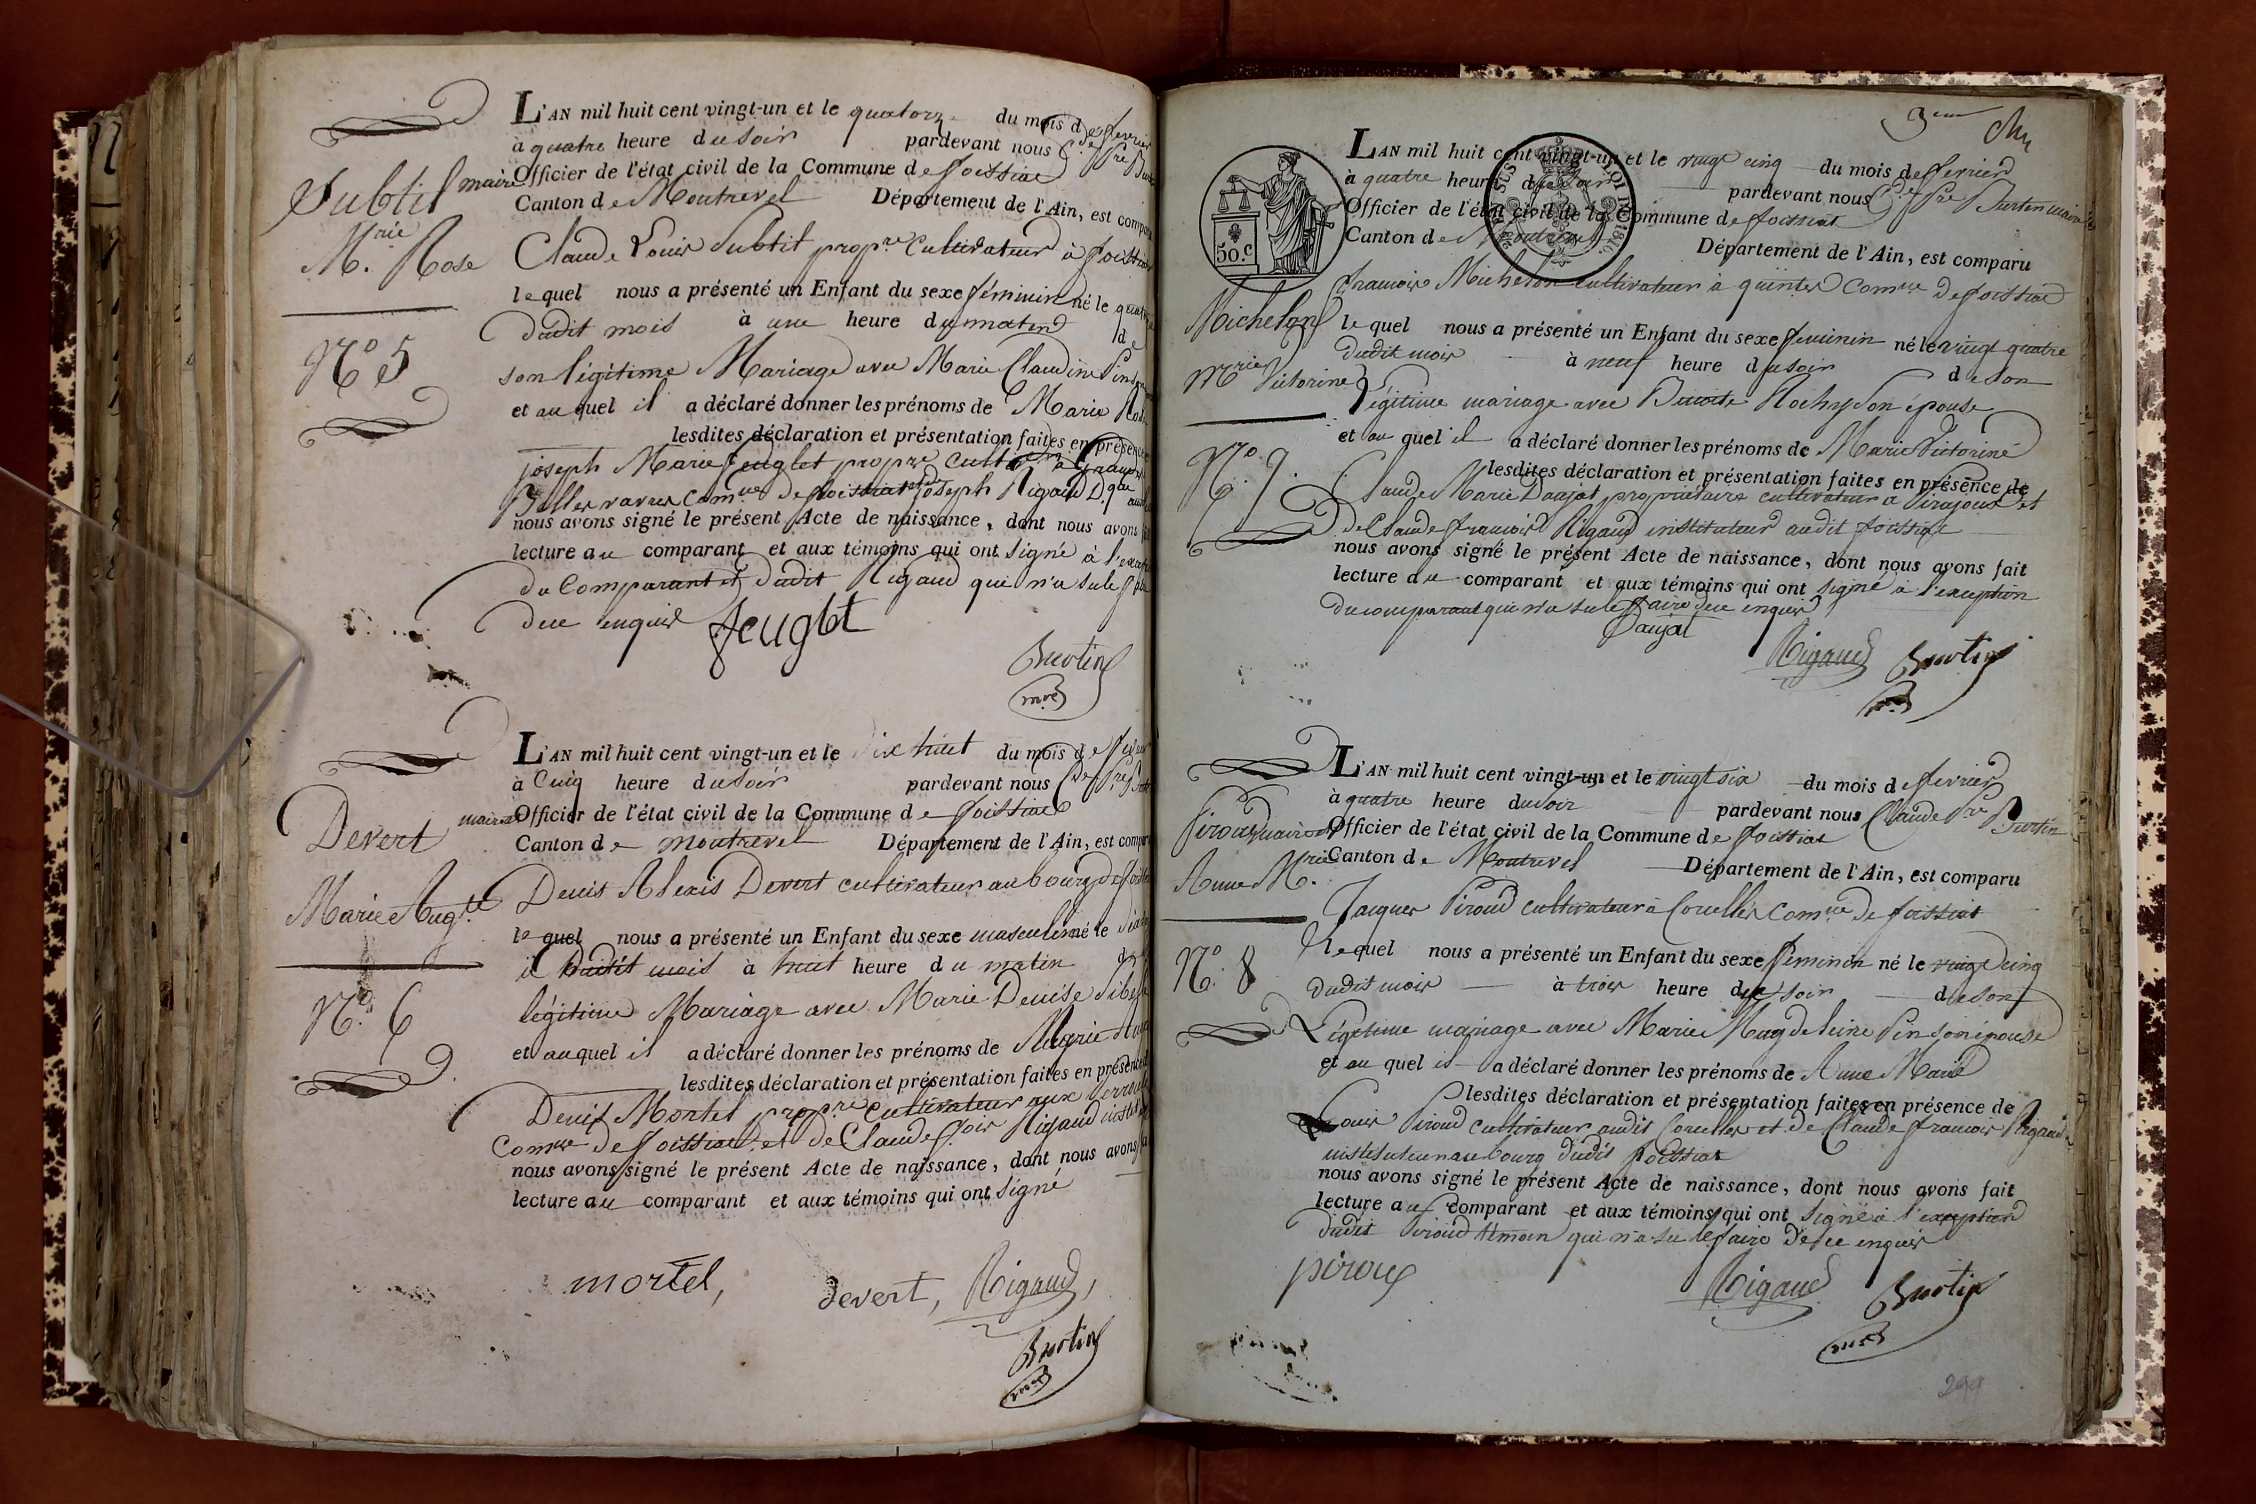 L'AN mil huit cent vingt-un et le quatorze du mois de fevrier
à quatre heure du soir pardevant nous C.de Pre Burtin
maire Officier de l'état civil de la Commune de foissiat
Canton de Montrevel Département de l'Ain, est comparu
Claude Louis Subtil propre. Cultivateur à foissiat
lequel nous a présenté un Enfant du sexe féminin né le quatorze
dudit mois à une heure du matin de
son légitime Mariage avec Marie Claudine
et auquel il a déclaré donner les prénoms de Marie Rose
lesdites déclaration et présentation faites en présence
joseph Marie feuglet propre cult
comune de foissiat et joseph Rigaud
nous avons signé le présent Acte de naissance, dont nous avons fait
lecture au comparant et aux témoins qui ont signé à l'exception
du Comparant et dudit Rigaud qui n'a su le faire
de ce enquis
feuglet
Burtin
mre
Subtil
M.rie Rose
N° 5
L'AN mil huit cent vingt-un et le dix huit du mois de fevrier
à Cinq heure du soir pardevant nous Cde Pre Burtin
maire Officier de l'état civil de la Commune de foissiat
Canton de montrevel Département de l'Ain, est comparu
Denis Alexis Devert cultivateur au bourg de foissiat
lequel nous a présenté un Enfant du sexe masculin né le dix huit
dudit mois à huit heure du matin de
légitime Mariage avec Marie Denise
et auquel il a déclaré donner les prénoms de Marie Aug
lesdites déclaration et présentation faites en présence
Denis Mortel propre cultivateur aux
Comune de foissiat et de Claude fois Rigaud instit
nous avons signé le présent Acte de naissance, dont nous avons fait
lecture au comparant et aux témoins qui ont signé
mortel, devert, Rigaud,
Burtin
mre
Devert
Marie Aug.te
N° 6
3eme
50.C
L'AN mil huit cent vingt-un et le vingt cinq du mois de fevrier
à quatre heure du soir pardevant nous C.de Pre Burtin maire
Officier de l'état civil de la Commune de foissiat
Canton de Montrevel Département de l'Ain, est comparu
francois Michelon cultivateur à quintes Comune de foissiat
lequel nous a présenté un Enfant du sexe feminin né le vingt quatre
dudit mois à neuf heure du soir de son
Légitime mariage avec Benoite Rochy son épouse
et au quel il a déclaré donner les prénoms de Marie Victorine
lesdites déclaration et présentation faites en présence de
Claude Marie Daujat propriétaire cultivateur à Pirajoux et
de Claude francois Rigaud instituteur audit foissiat
nous avons signé le présent Acte de naissance, dont nous avons fait
lecture au comparant et aux témoins qui ont signé à l'exception
du comparant qui n'a su le faire de ce enquis
Daujat
Rigaud Burtin
mre
Michelon
Mrie Victorine
N° 7.
L'AN mil huit cent vingt-un et le vingt six du mois de fevrier
à quatre heure du soir pardevant nous Claude Pre Burtin
maire Officier de l'état civil de la Commune de foissiat
Canton de Montrevel Département de l'Ain, est comparu
Jacques Piroud cultivateur à Corcelles Comune de foissiat
lequel nous a présenté un Enfant du sexe féminin né le vingt cinq
dudit mois à trois heure du soir de son
Légitime mariage avec Marie Magdeleine Pin son épouse
et au quel il a déclaré donner les prénoms de Anne Marie
lesdites déclaration et présentation faites en présence de
Louis Piroud cultivateur audit Corcelles et de Claude francois Rigaud
instituteur au bourg dudit foissiat
nous avons signé le présent Acte de naissance, dont nous avons fait
lecture au comparant et aux témoins qui ont signé à l'exception
dudit Piroud témoin qui n'a su le faire de ce enquis
piroud
Rigaud Burtin
mre
Piroud
Anne M.rie
N° 8
299